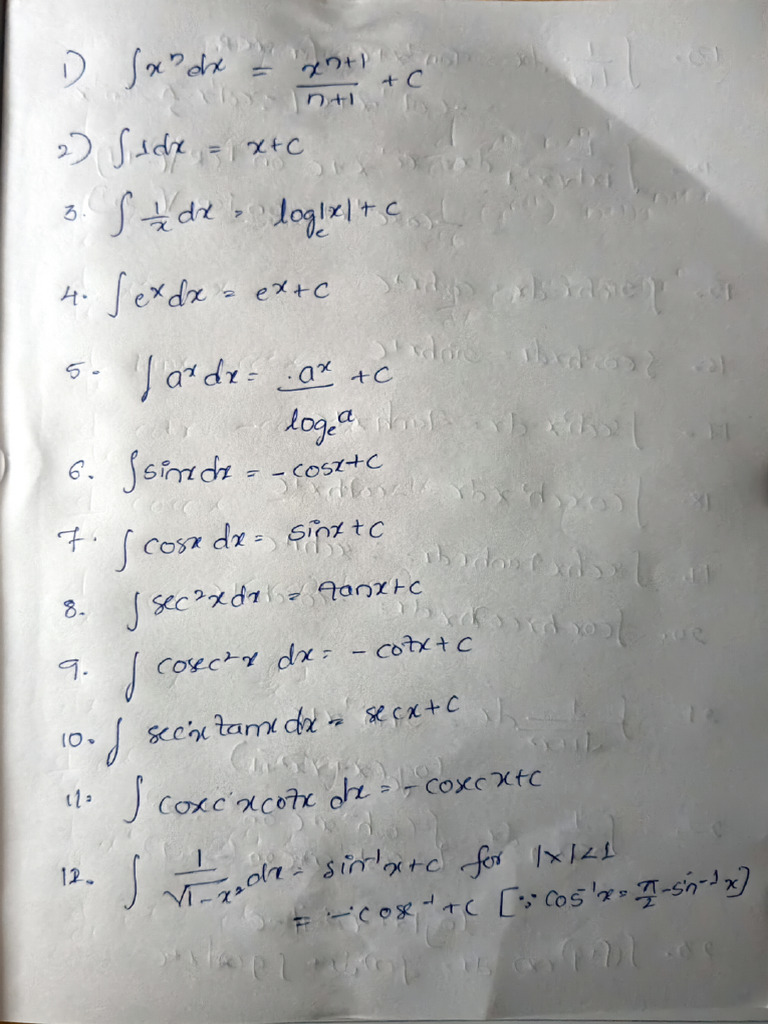 1) ∫xⁿ dx = xⁿ⁺¹/n+1 + C
2) ∫1dx = x+c
3. ∫ 1/x dx = logₑ|x| + c
4. ∫eˣdx = eˣ+c
5. ∫aˣ dx = aˣ/logₑa + c
6. ∫sinx dx = -cosx+c
7. ∫cosx dx = sinx+c
8. ∫sec²x dx = tanx+c
9. ∫cosec²x dx = -cotx+c
10. ∫secx tanx dx = secx+c
11. ∫cosecxcotx dx = -cosecx+c
12. ∫1/√1-x² dx = sin⁻¹x+c for |x|<1
= -cos⁻¹+c [∵ cos⁻¹x = π/2 - sin⁻¹x]